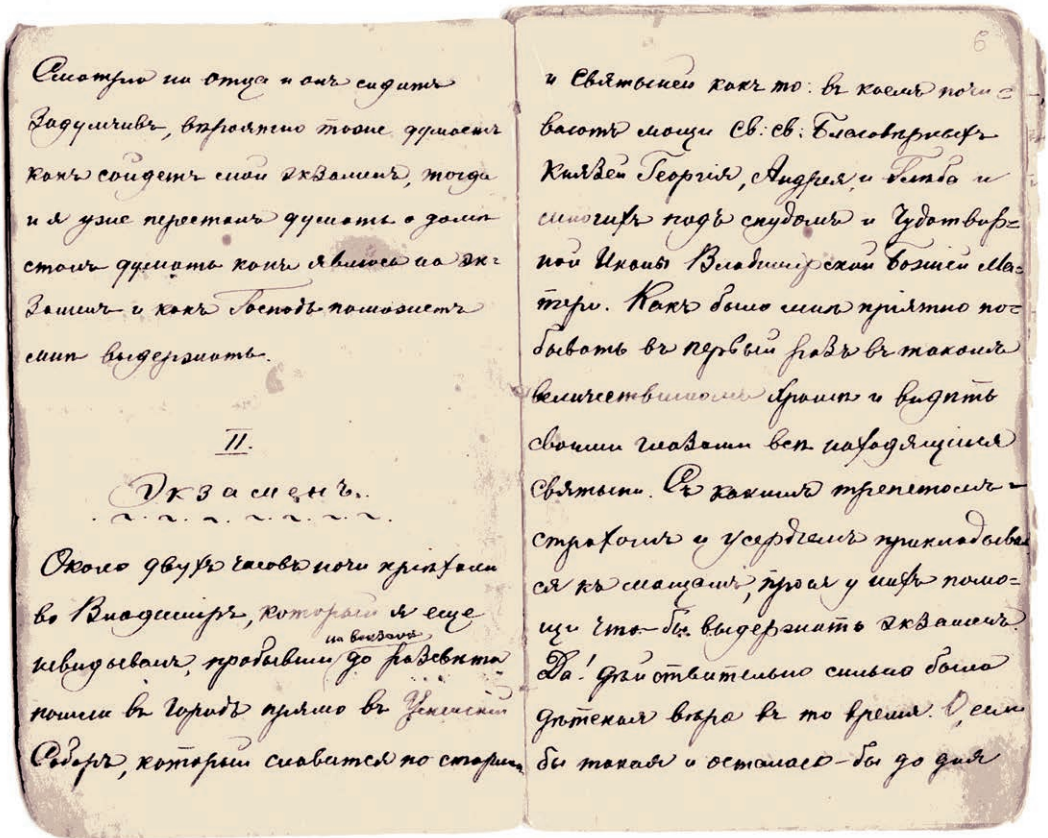 Смотрю на отца и онъ сидитъ
задумчивъ, вѣроятно тоже думаетъ
какъ сойдетъ мой экзаменъ, тогда
и я уже пересталъ думать о домѣ
сталъ думать какъ явлюсь на эк=
заменъ и какъ Господь поможетъ
мнѣ выдержать.
II.
Экзаменъ.
Около двухъ часовъ ночи пріѣхали
во Владиміръ, который я еще
невидывалъ, пробывши на вокзалѣ до разсвѣта
пошли въ городъ прямо въ Успенскій
Соборъ, который славится по старинѣ
6
и святыней какъ то: въ коемъ почи=
ваютъ мощи Св: св: Благовѣрныхъ
Князей Георгія, Андрея, и Глѣба и
многихъ подъ спудомъ и Чудотвор=
ной Иконы Владимірской Божіей Ма=
тери. Какъ было мнѣ пріятно по=
бывать въ первый разъ въ такомъ
величественномъ храмѣ и видѣть
своими глазами всѣ находящіися
святыни. Съ какимъ трепетомъ
страхомъ и усердіемъ прикладывал
ся къ мощамъ, прося у нихъ помо=
щи что-бы выдержать экзаменъ.
Да! дѣйствительно сильна была
дѣтская вѣра въ то время. О, если
бы такая и осталась-бы до дня